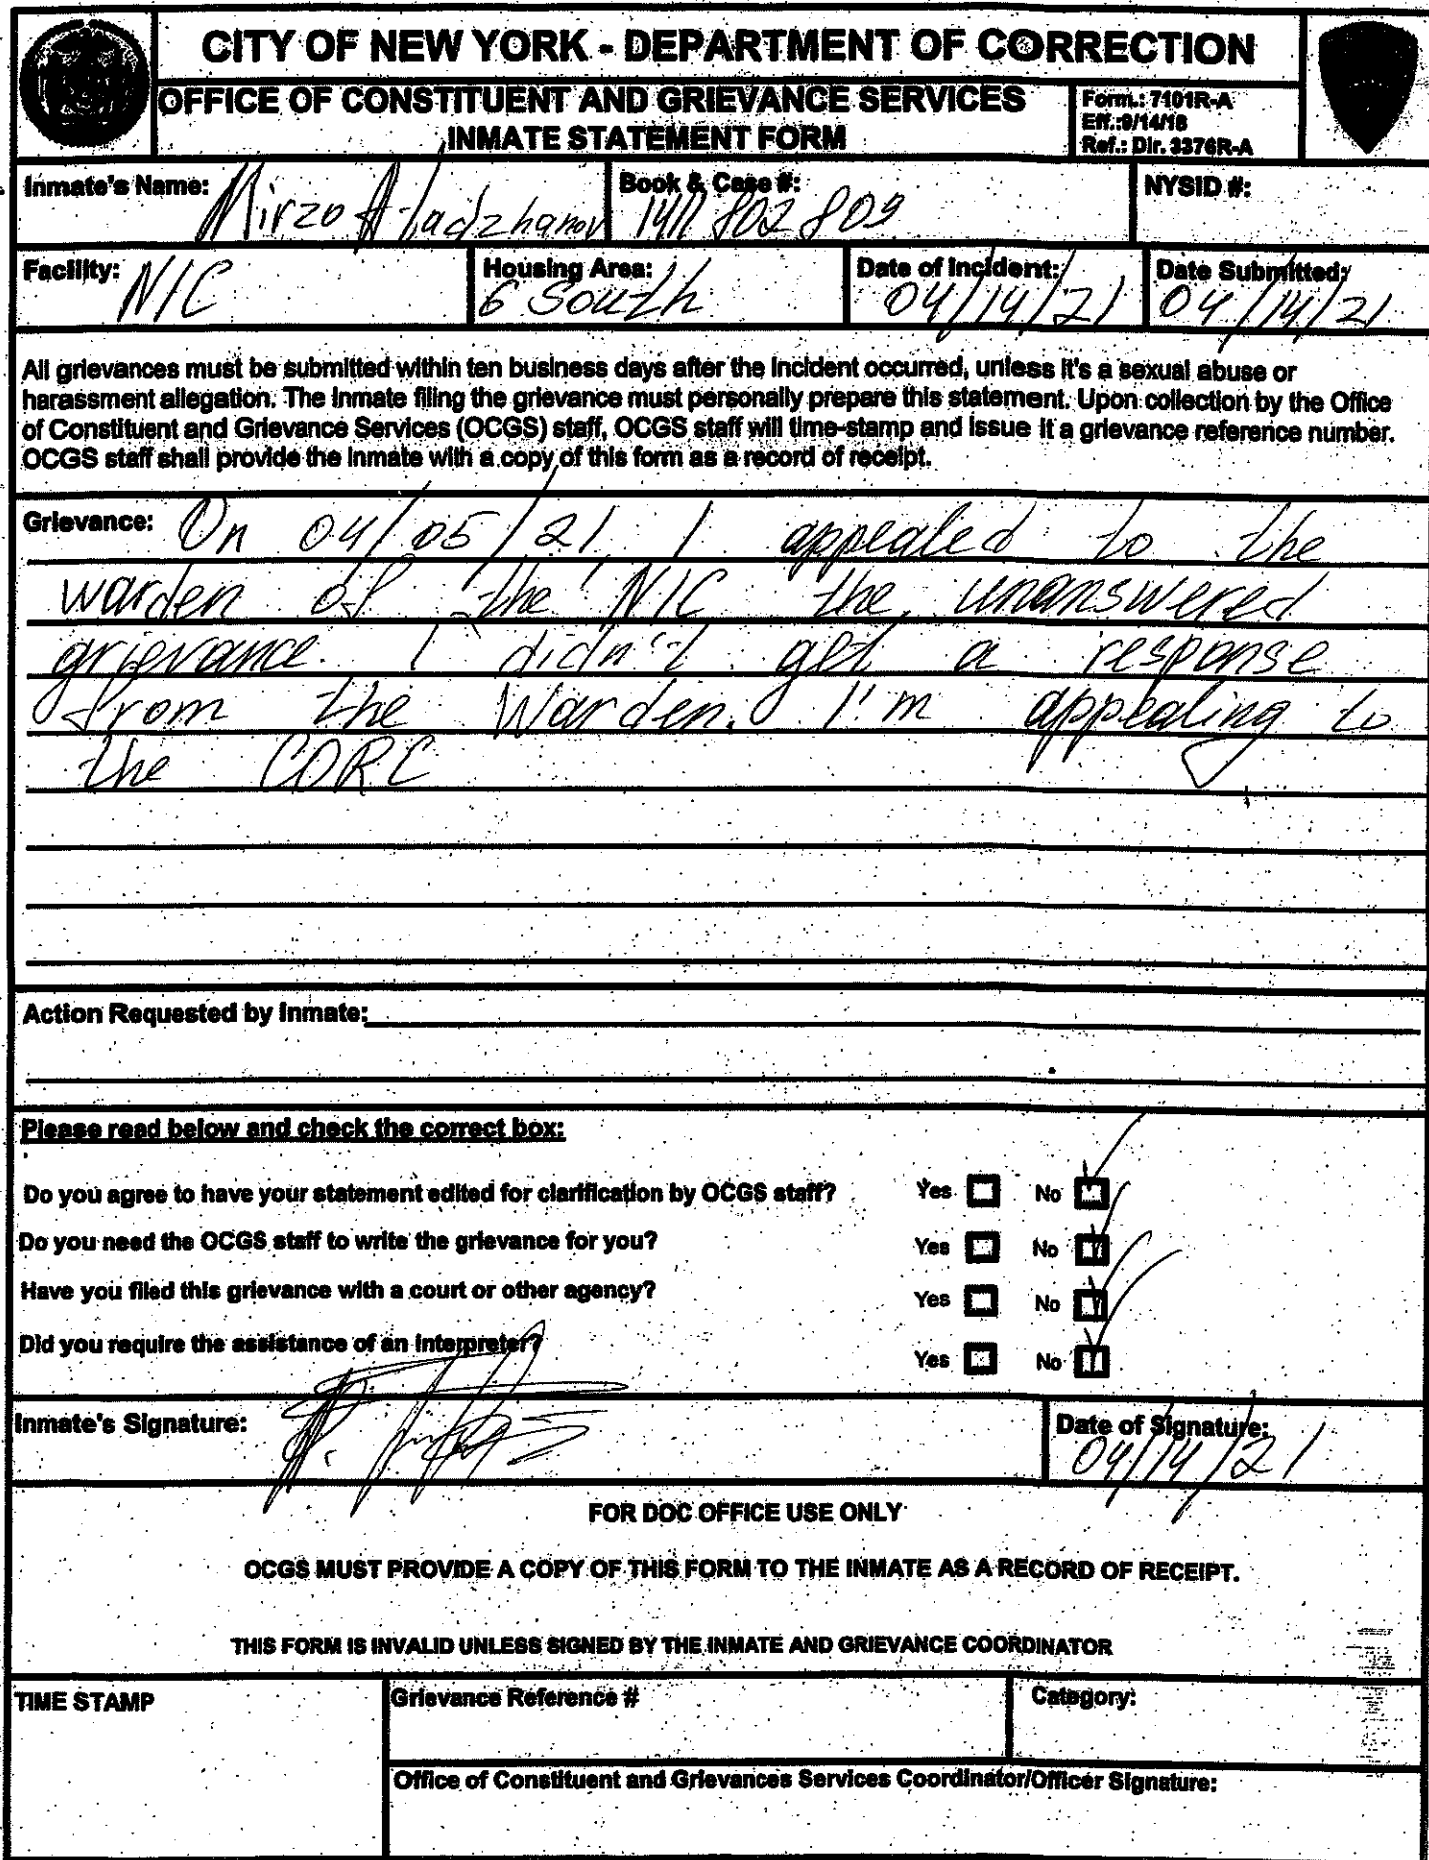 CITY OF NEW YORK - DEPARTMENT OF CORRECTION
OFFICE OF CONSTITUENT AND GRIEVANCE SERVICES
INMATE STATEMENT FORM
Form.: 7101R-A
Eff.:9/14/18
Ref.: Dir. 3376R-A
Inmate's Name: Mirzo Atadzhanov
Book & Case #: 1411802809
NYSID #:
Facility: NIC
Housing Area: 6 South
Date of Incident: 04/14/21
Date Submitted: 04/14/21
All grievances must be submitted within ten business days after the incident occurred, unless it's a sexual abuse or
harassment allegation. The inmate filing the grievance must personally prepare this statement. Upon collection by the Office
of Constituent and Grievance Services (OCGS) staff, OCGS staff will time-stamp and issue it a grievance reference number.
OCGS staff shall provide the inmate with a copy of this form as a record of receipt.
Grievance: On 04/05/21 I appealed to the
warden of the NIC the unanswered
grievance. I didn't get a response
from the Warden. I'm appealing to
the CORC
Action Requested by Inmate:
Please read below and check the correct box:
Do you agree to have your statement edited for clarification by OCGS staff? Yes No
Do you need the OCGS staff to write the grievance for you? Yes No
Have you filed this grievance with a court or other agency? Yes No
Did you require the assistance of an interpreter? Yes No
Inmate's Signature:
Date of Signature: 04/14/21
FOR DOC OFFICE USE ONLY
OCGS MUST PROVIDE A COPY OF THIS FORM TO THE INMATE AS A RECORD OF RECEIPT.
THIS FORM IS INVALID UNLESS SIGNED BY THE INMATE AND GRIEVANCE COORDINATOR
TIME STAMP
Grievance Reference #
Category:
Office of Constituent and Grievances Services Coordinator/Officer Signature: